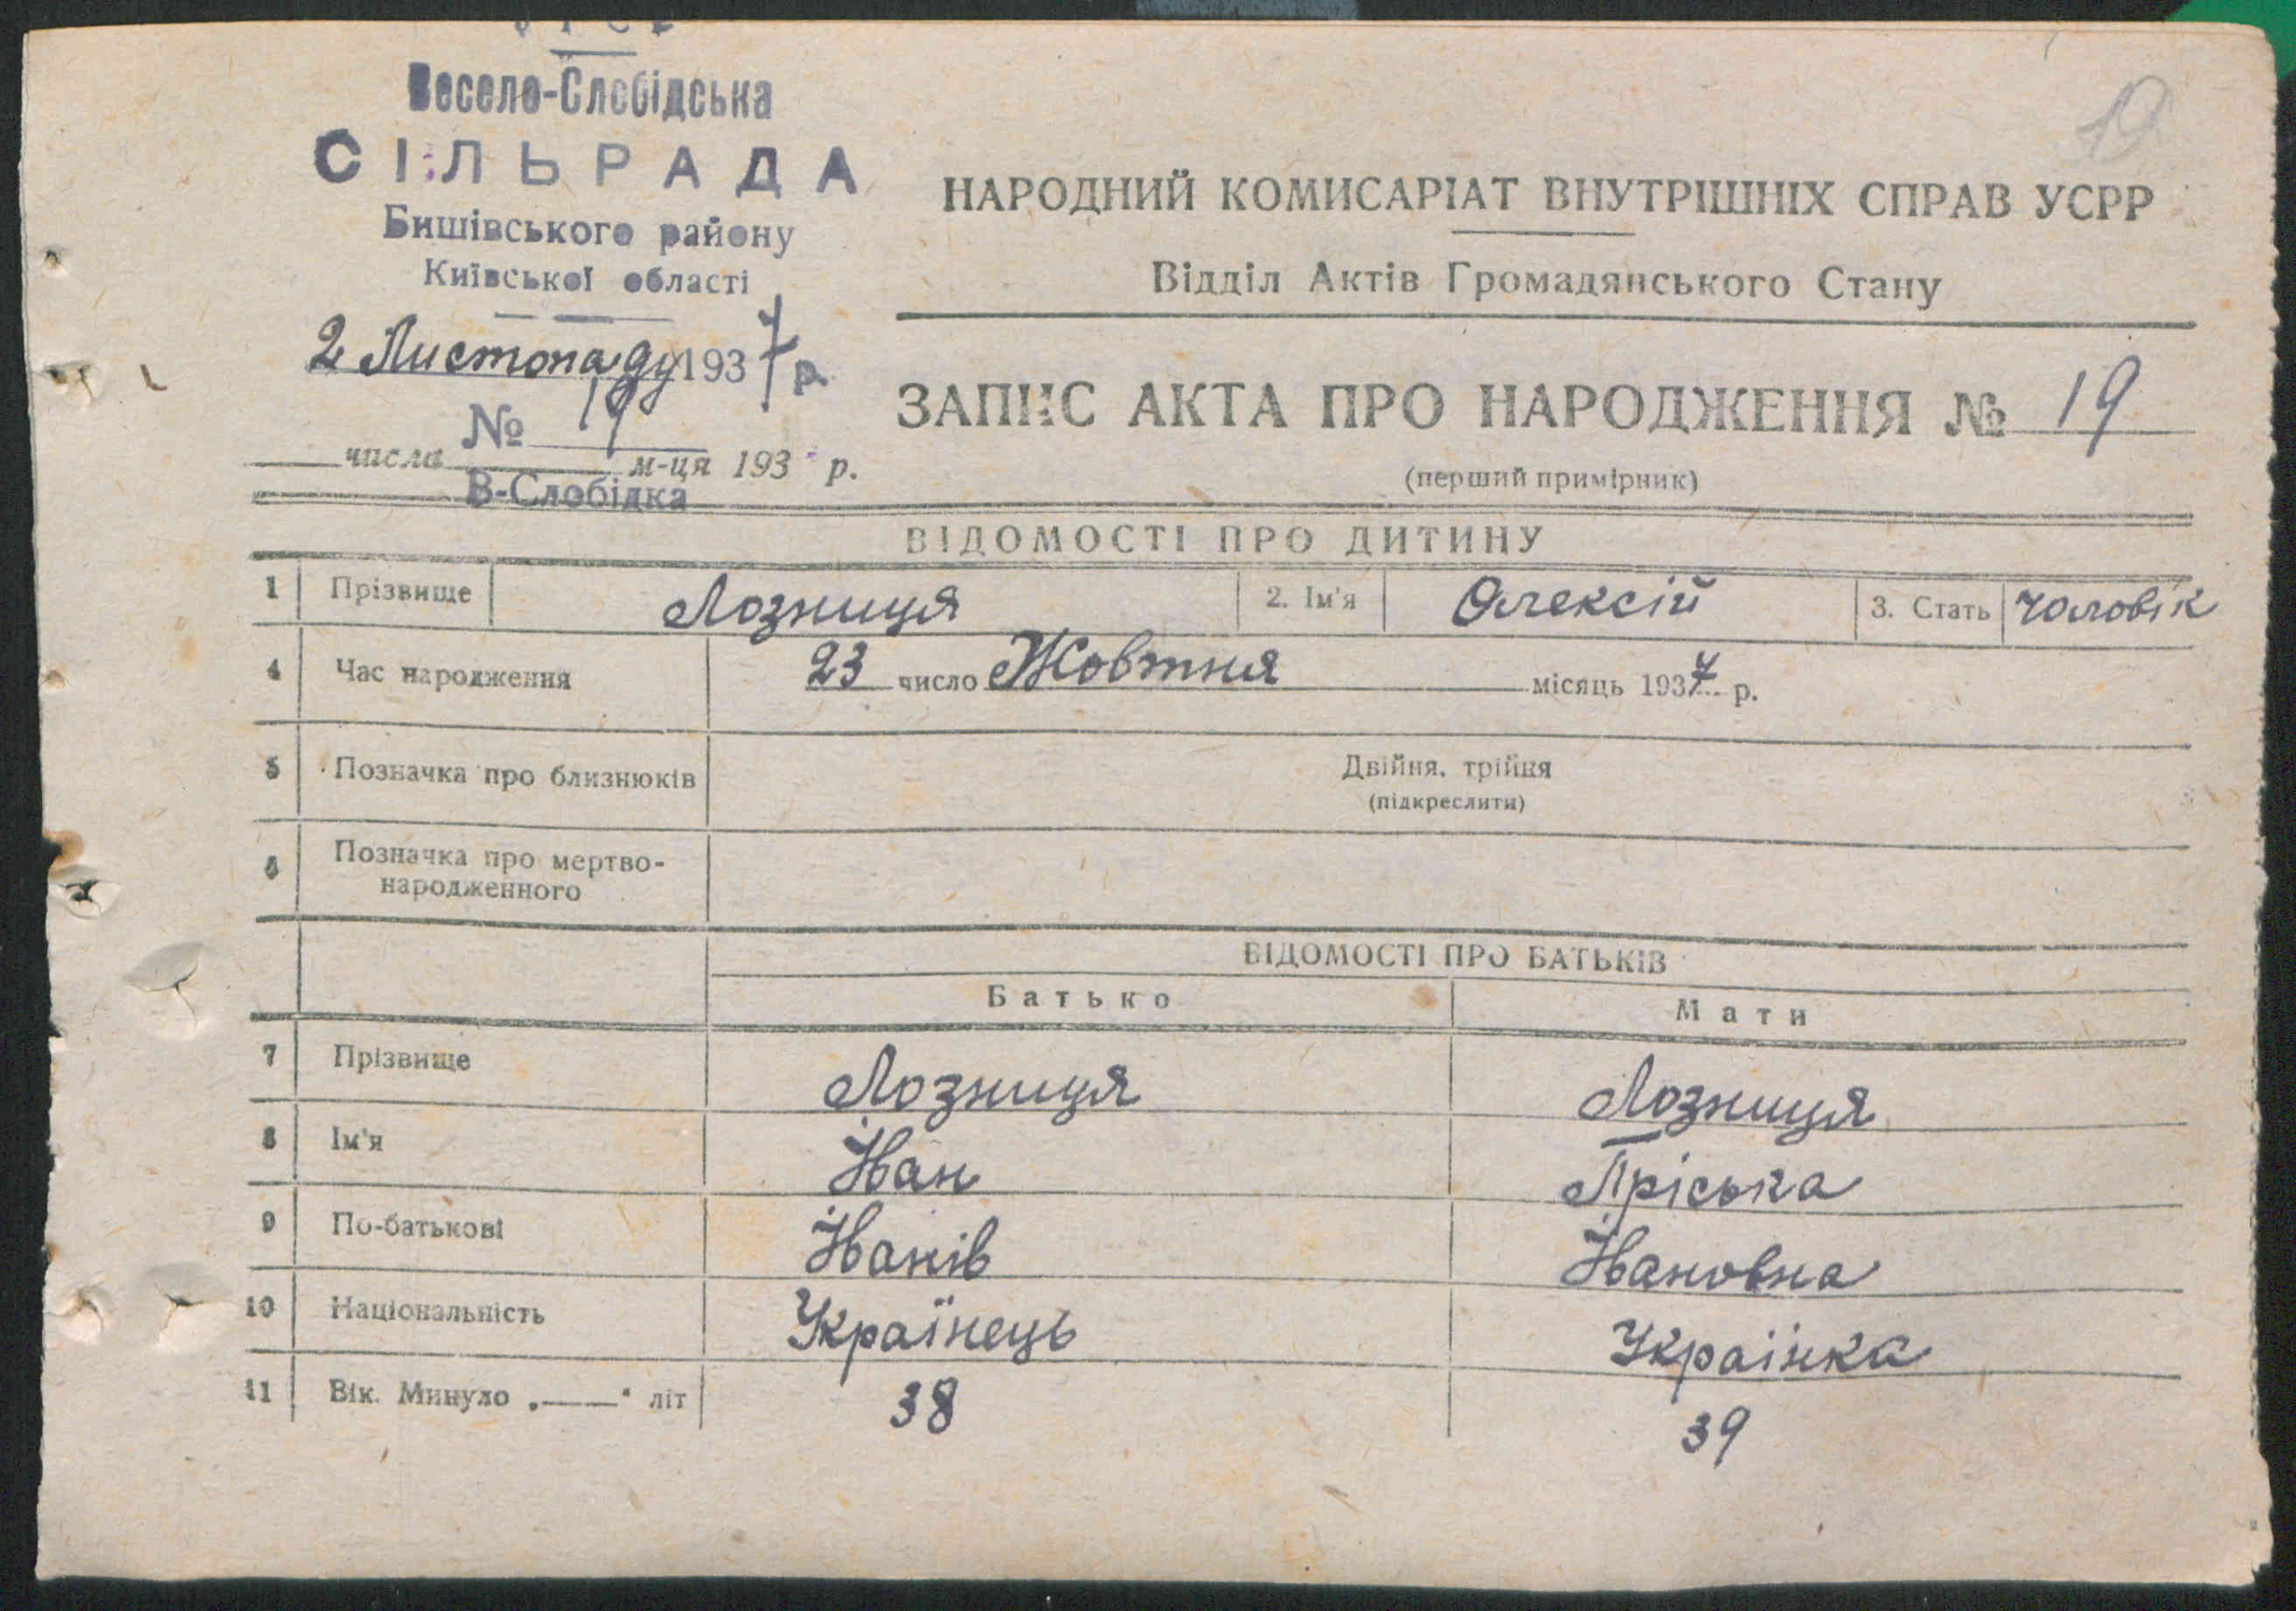 Весело-Слобідська
СІЛЬРАДА
Бишівського району
Київської області
2 Листопаду 1937 р.
№ 19
числа м-ця 193 р.
В-Слобідка
19
НАРОДНИЙ КОМИСАРІАТ ВНУТРІШНІХ СПРАВ УСРР
Відділ Актів Громадянського Стану
ЗАПИС АКТА ПРО НАРОДЖЕННЯ № 19
(перший примірник)
ВІДОМОСТІ ПРО ДИТИНУ
1 Прізвище Лозниця 2. Ім'я Олексій 3. Стать чоловік
4 Час народження 23 число Жовтня місяць 1937 р.
5 Позначка про близнюків Двійня, трійня
(підкреслити)
6 Позначка про мертво-
народженного
ВІДОМОСТІ ПРО БАТЬКІВ
Батько Мати
7 Прізвище Лозниця Лозниця
8 Ім'я Іван Пріська
9 По-батькові Іванів Івановна
10 Національність Українець Українка
11 Вік. Минуло „——“ літ 38 39